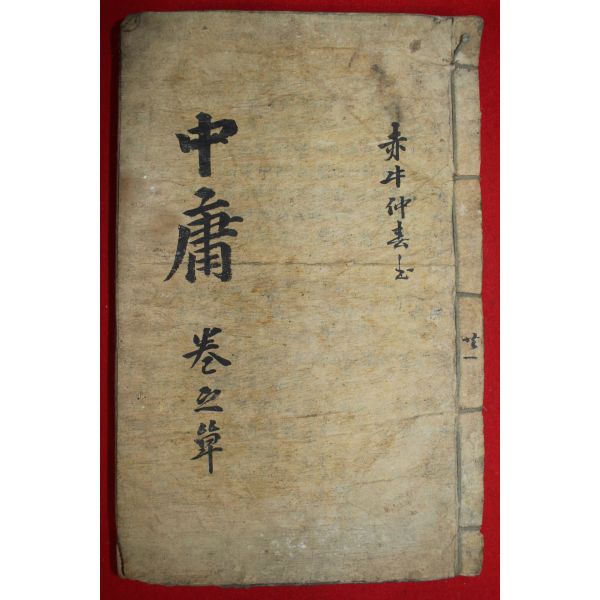 赤牛仲春
中庸 卷之單
共一